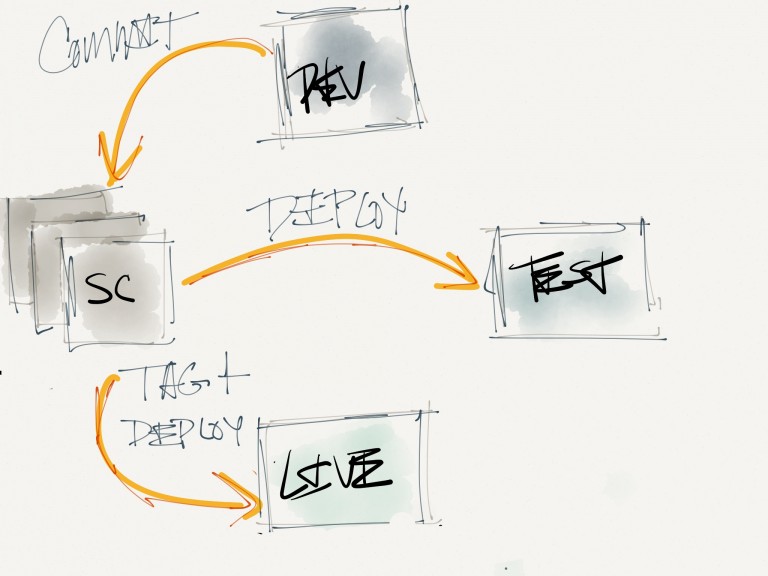 COMMIT
DEV
DEPLOY
SC
TEST
TAG +
DEPLOY
LIVE